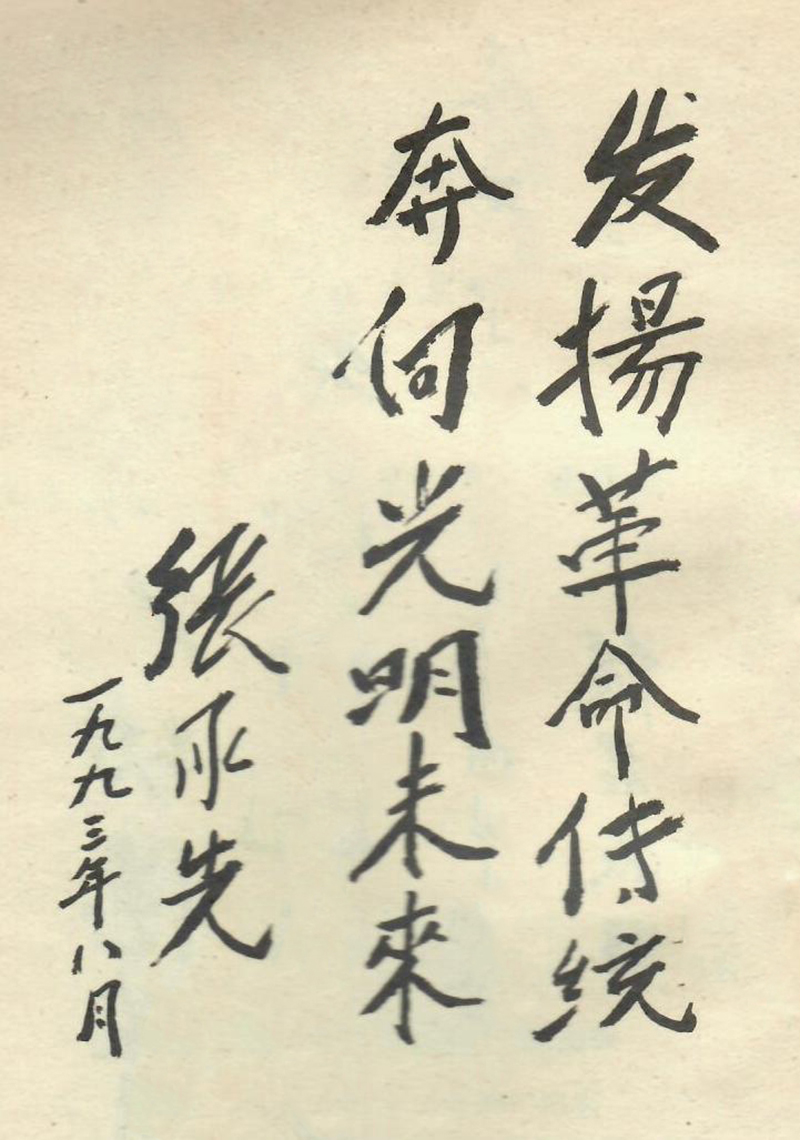 发揚革命传统
奔向光明未來
張承先
一九九三年八月